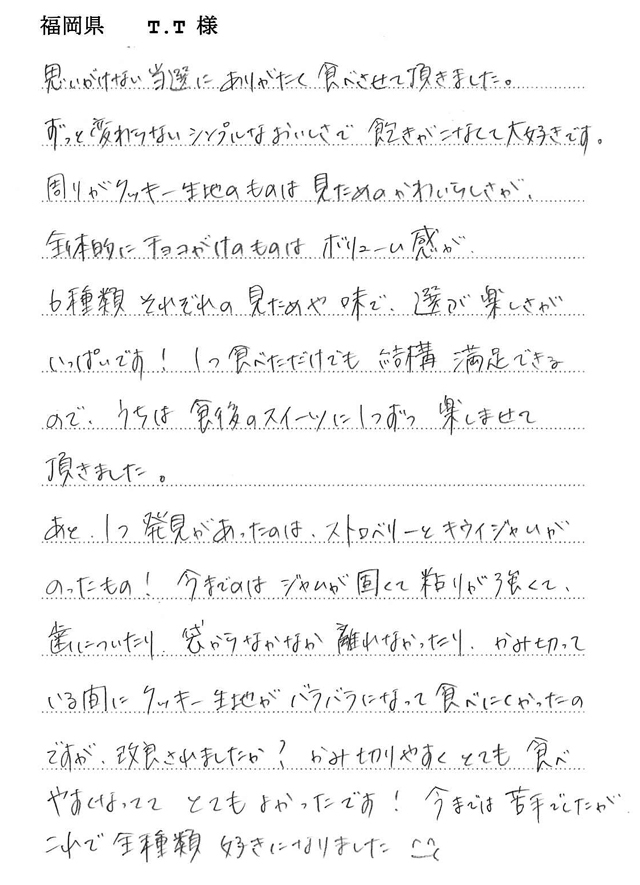 福岡県　T.T 様
思いがけない当選に ありがたく 食べさせて頂きました。
ずっと変わらないシンプルなおいしさで 飽きがこなくて大好きです。
周りがクッキー生地のものは 見ためのかわいらしさが、
全体的に チョコがけのものは ボリューム感が、
6種類 それぞれの 見ためや 味で、選ぶ 楽しさが
いっぱいです！ 1つ食べただけでも 結構 満足できる
ので、うちは 食後のスイーツに1つずつ 楽しませて
頂きました。
あと、1つ 発見があったのは、ストロベリーとキウイジャムが
のったもの！ 今までのは ジャムが固くて粘りが強くて、
歯についたり、袋からなかなか 離れなかったり、かみ切って
いる間に クッキー生地が バラバラになって食べにくかったの
ですが、改良されましたか？ かみ切りやすく とても 食べ
やすくなってて とてもよかったです！ 今までは 苦手でしたが
これで 全種類 好きになりました